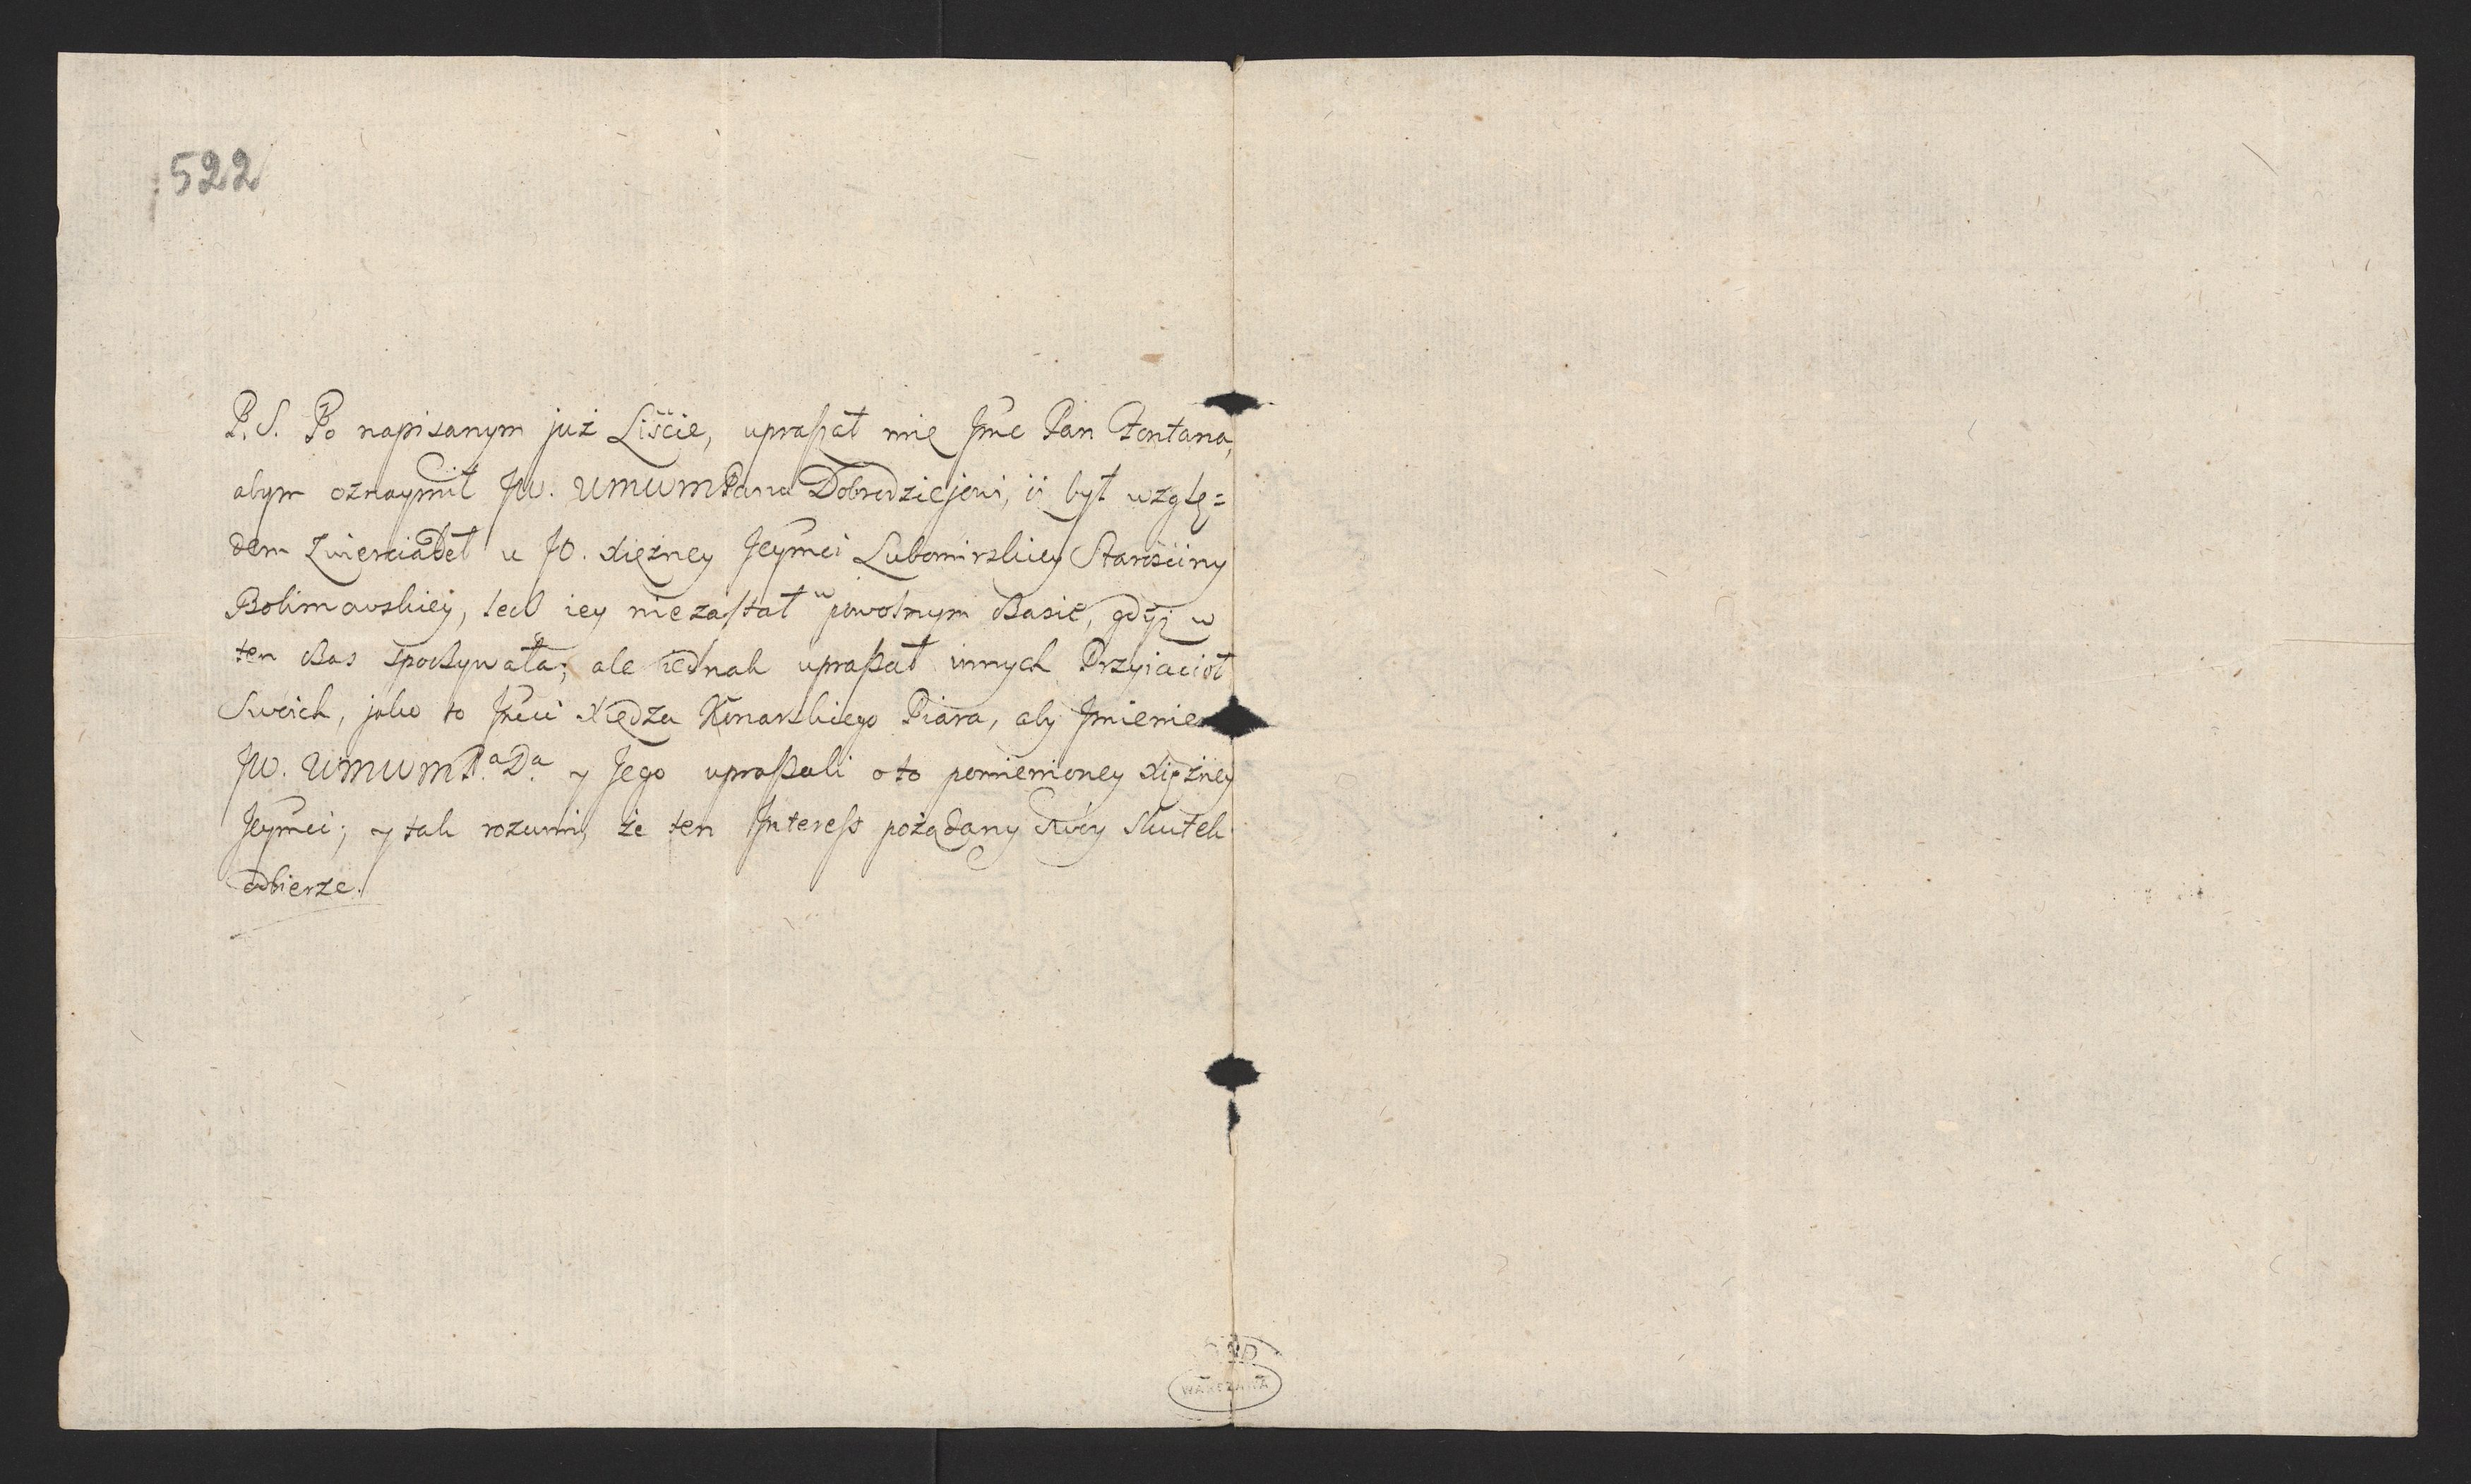 522
P.S. Po napisanym już Liście, upraszał mię Jmc Pan Fontana,
abym oznaymił JW. WMWMPana Dobrodziejowi, iż był wzglę=
dem Zwierciadeł u JO. Xiężney Jeymci Lubomirskiey Starościny
Bolimowskiey, lecz iey niezastał w powolnym czasie, gdyż w
ten czas spoczywała; ale iednak upraszał innych Przyiaciół
Swoich, jako to Jmci Xiędza Konarskiego Piara, aby Jmieniem
JW. WMWMP.ᵃD.ᵃ y Jego upraszali oto pomienioney Xiężney
Jeymci; y tak rozumi, że ten Interess pożądany swóy skutek
odbierze.
WARSZAWA